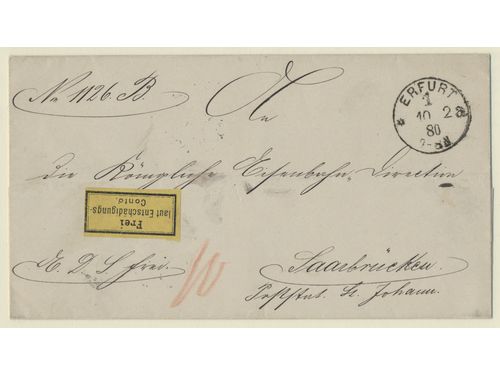 No 1126. B.
An
ERFURT
1
10 2
80
Die Königliche Eisenbahn-Direction
Frei
laut Entschädigungs-
Conto.
E. D. S. frei.
10
Saarbrücken.
Poststat. St. Johann.